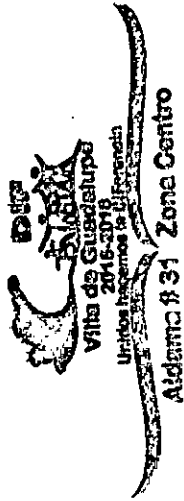 DIF
Villa de Guadalupe
2015-2018
Unidos hacemos la Diferencia
Aldama # 31 Zona Centro